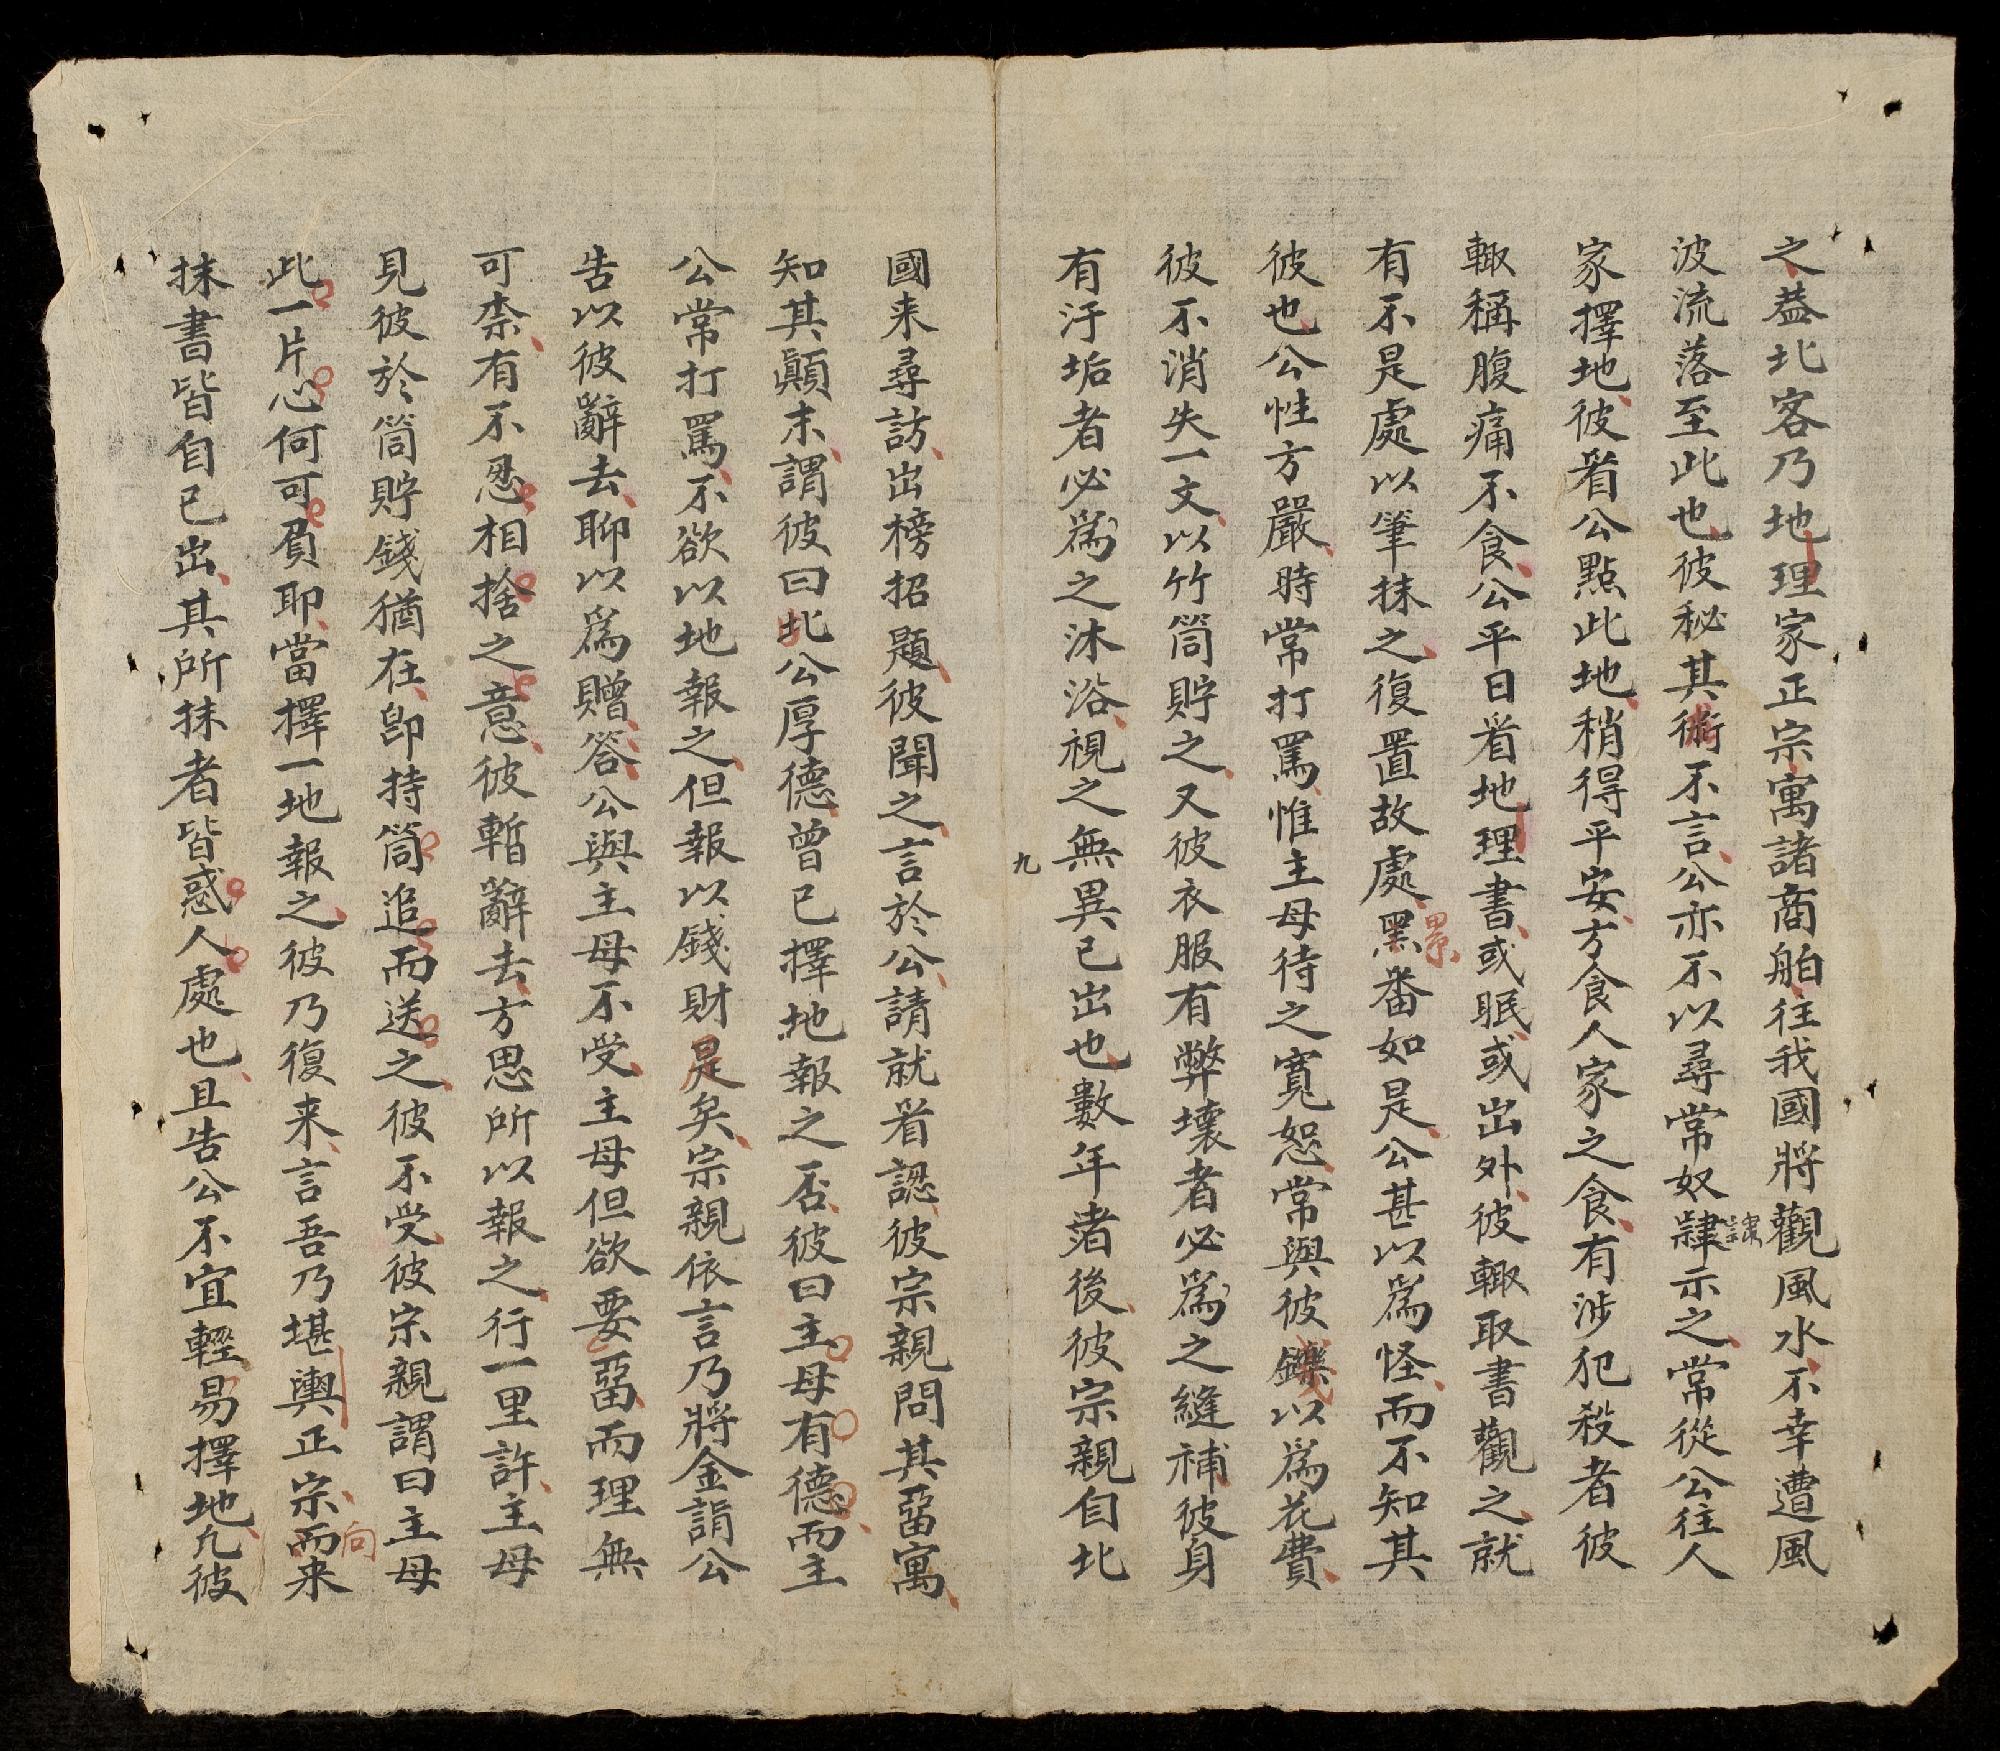 之葢北客乃地理家正宗寓諸商舶往我國將觀風水不幸遭風
波流落至此也彼秘其術不言公亦不以尋常奴隸示之常從公往人
隸
家擇地彼看公點此地稍得平安方食人家之食有涉犯殺者彼
輙稱腹痛不食公平日看地理書或眠或出外彼輙取書觀之就
有不是處以筆抹之復置故處累番如是公甚以爲怪而不知其
累
彼也公性方嚴時常打罵惟主母待之寛恕常與彼錢以爲花費
彼不消失一文以竹筒貯之又彼衣服有弊壞者必爲之縫補彼身
有汙垢者必爲之沐浴視之無異己出也數年渚後彼宗親自北
九
國来尋訪出榜招題彼聞之言於公請就看認彼宗親問其畱寓
知其顛末謂彼曰北公厚德曾已擇地報之否彼曰主母有德而主
公常打罵不欲以地報之但報以錢財是矣宗親依言乃將金詣公
告以彼辭去聊以爲贈答公與主母不受主母但欲要畱而理無
可柰有不忍相捨之意彼暫辭去方思所以報之行一里許主母
見彼於筒貯錢猶在卽持筒追而送之彼不受彼宗親謂曰主母
此一片心何可負耶當擇一地報之彼乃復来言吾乃堪輿正宗而来
向
抹書皆自已出其所抹者皆惑人處也且告公不宜輕易擇地凢彼